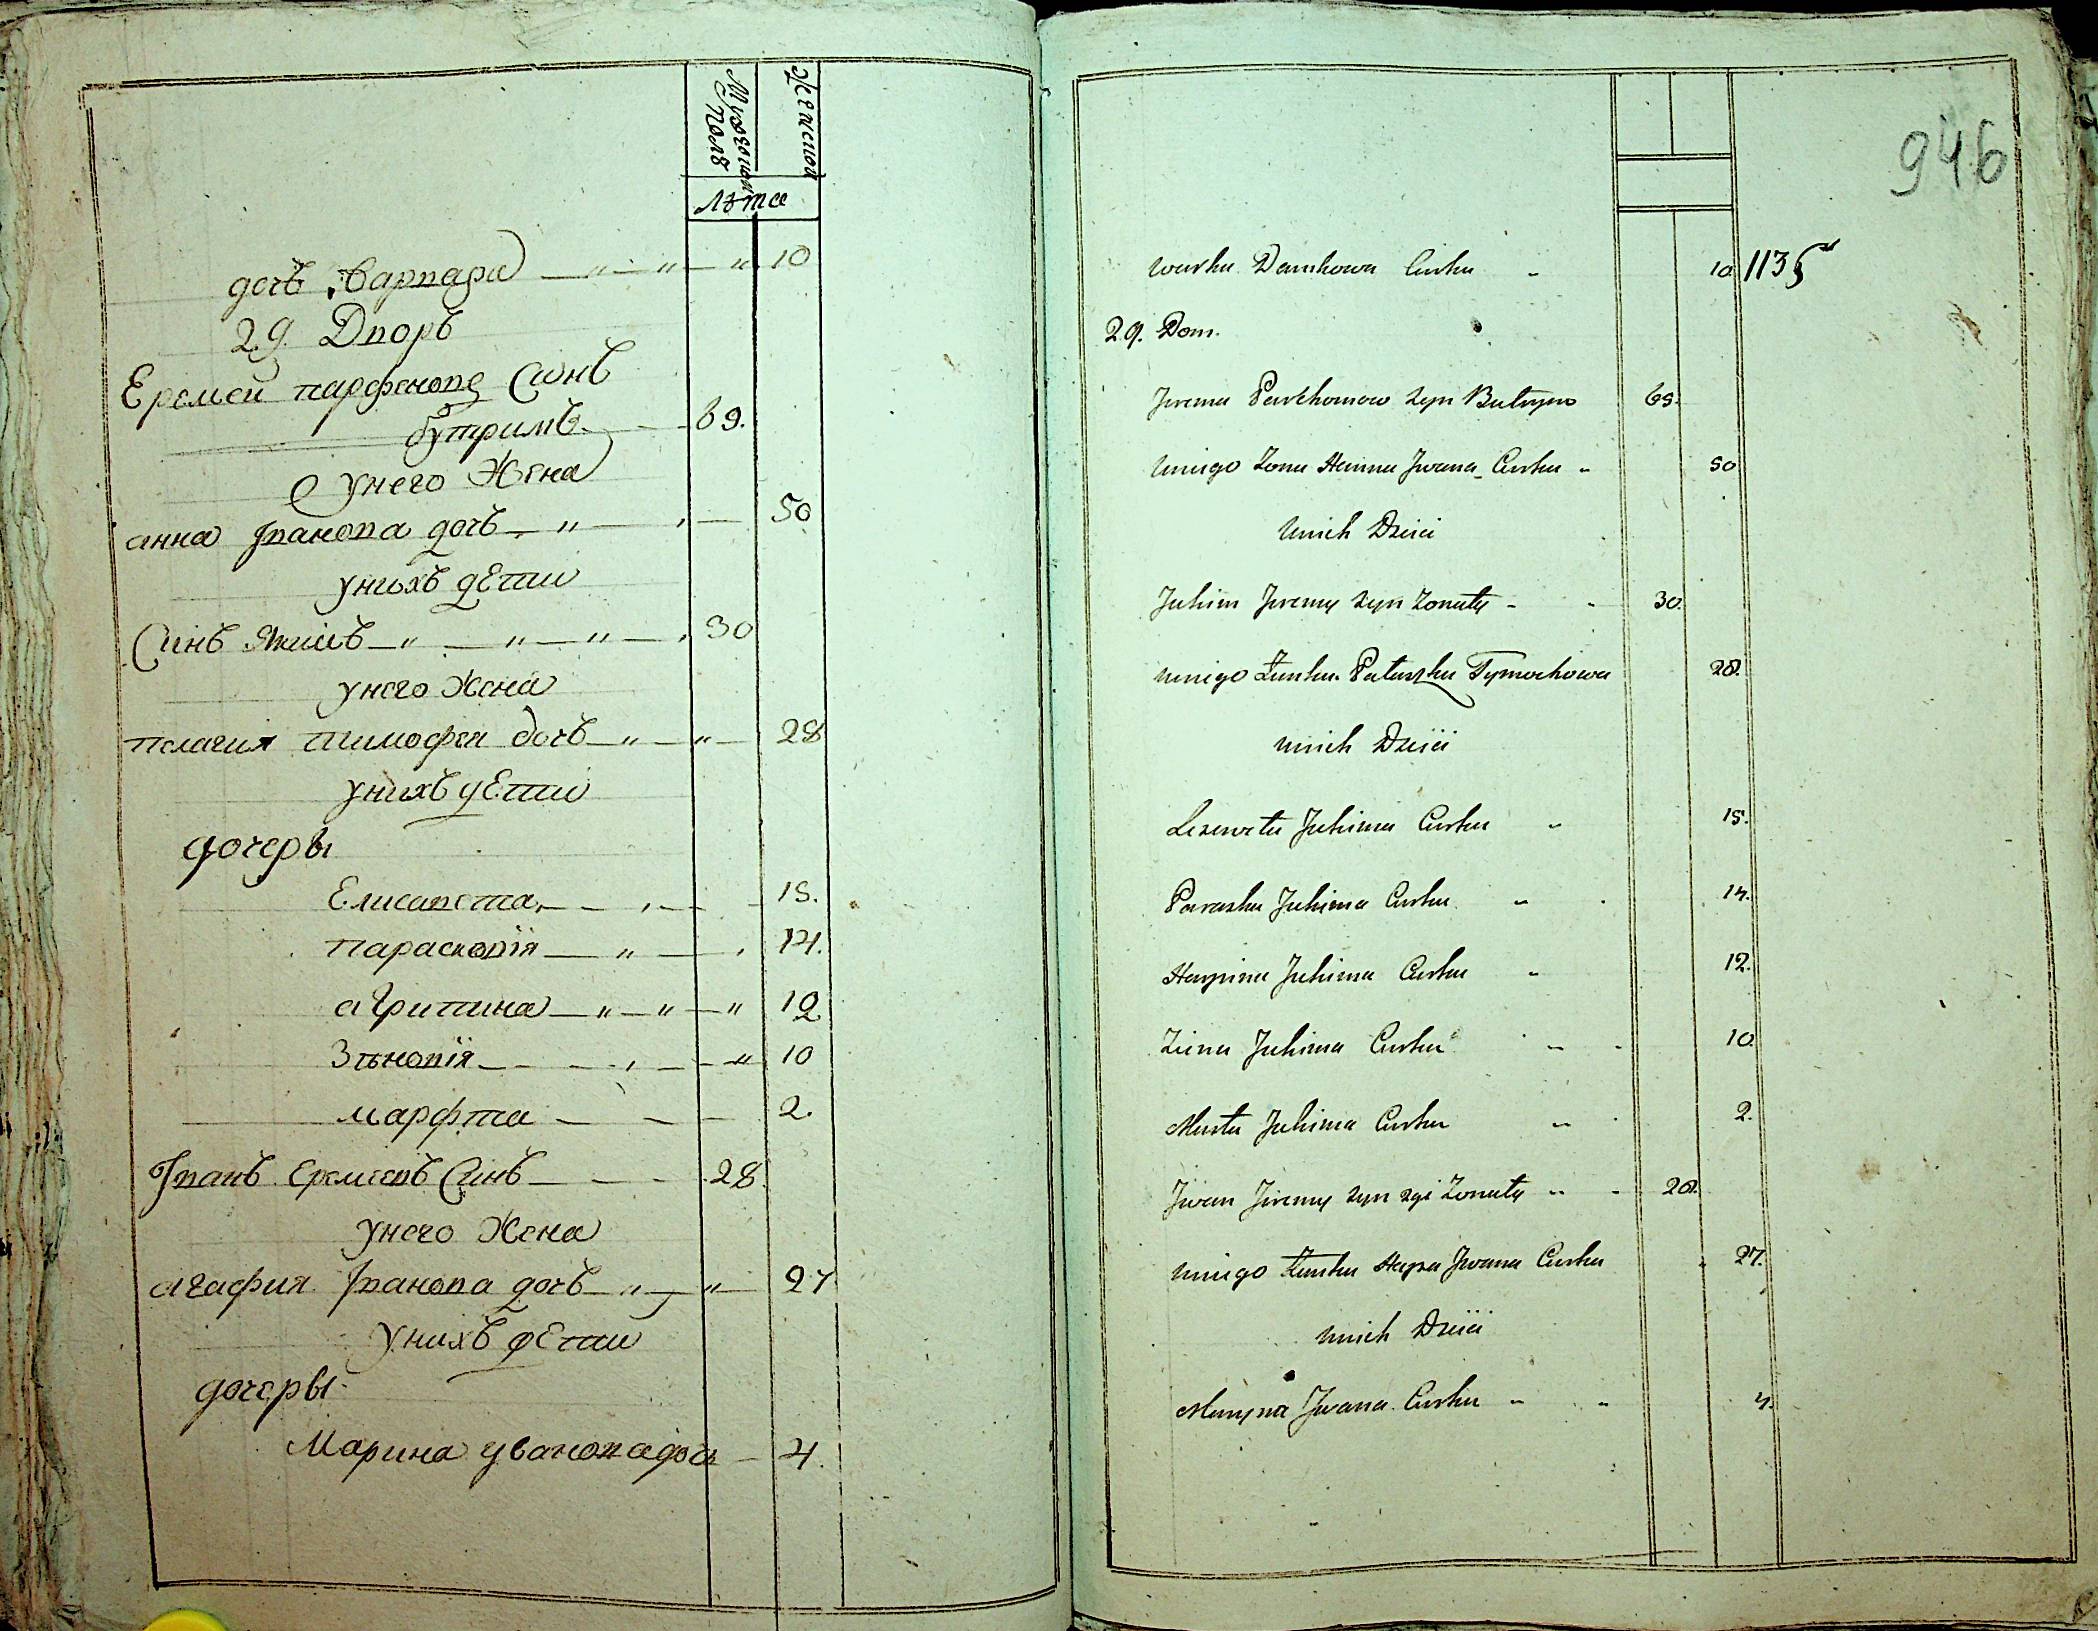 Мужеской Пола
Женской
Лѣта
дочь Варвара 10
29. Дворъ
Еремей парфенове Синъ
бутримъ 69.
у него Жена
анна Іванова дочь 50
унихъ дЕти
Синъ Якимъ 30
унего Жена
пелагия тимофея дочь 28
унихъ дЕти
дочеры
Елисавета 15.
парасковія 14.
агрипина 12
Зѣновія 10
марфта 2.
Іванъ Еремеевъ Синъ 28.
унего Жена
агафия Іванова дочь 27
унихъ дЕти
дочеры
Марина уванова дочь 4.
946
Warka Demkowa Curka 10 1135
29. Dom.
Jrema Parchomow Syn Butrym 69.
Uniego Zona Hanna Jwana Curka 50
Unich Dzieci
Jukim Jremy Syn Zonaty 30.
Unigo Żonka Palaszka Tymochowa 28.
Unich Dzieci
Lezaweta Jukima Curka 15.
Paraska Jukima Curka 14.
Harpina Jukima Curka 12.
Zina Jukima Curka 10
Marta Jukima Curka 2.
Jwan Jremy Syn zgi Zonaty 28.
Uniego Żonka Hapa Jwana Curka 27.
Unich Dzieci
Maryna Jwana Curka 4.